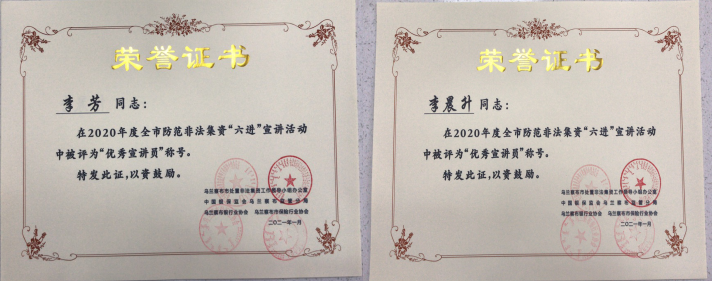 荣誉证书
李芳 同志：
在2020年度全市防范非法集资“六进”宣讲活动
中被评为“优秀宣讲员”称号。
特发此证，以资鼓励。
乌兰察布市处置非法集资工作领导小组办公室
中国银保监会乌兰察布监管分局
乌兰察布市银行业协会 乌兰察布市保险行业协会
二〇二一年一月
荣誉证书
李晨升 同志：
在2020年度全市防范非法集资“六进”宣讲活动
中被评为“优秀宣讲员”称号。
特发此证，以资鼓励。
乌兰察布市处置非法集资工作领导小组办公室
中国银保监会乌兰察布监管分局
乌兰察布市银行业协会 乌兰察布市保险行业协会
二〇二一年一月